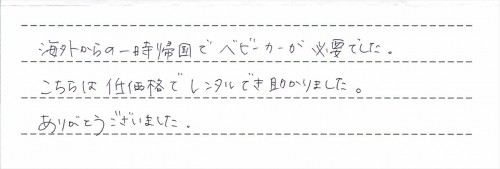 海外からの一時帰国でベビーカーが必要でした。
こちらは低価格でレンタルでき助かりました。
ありがとうございました。